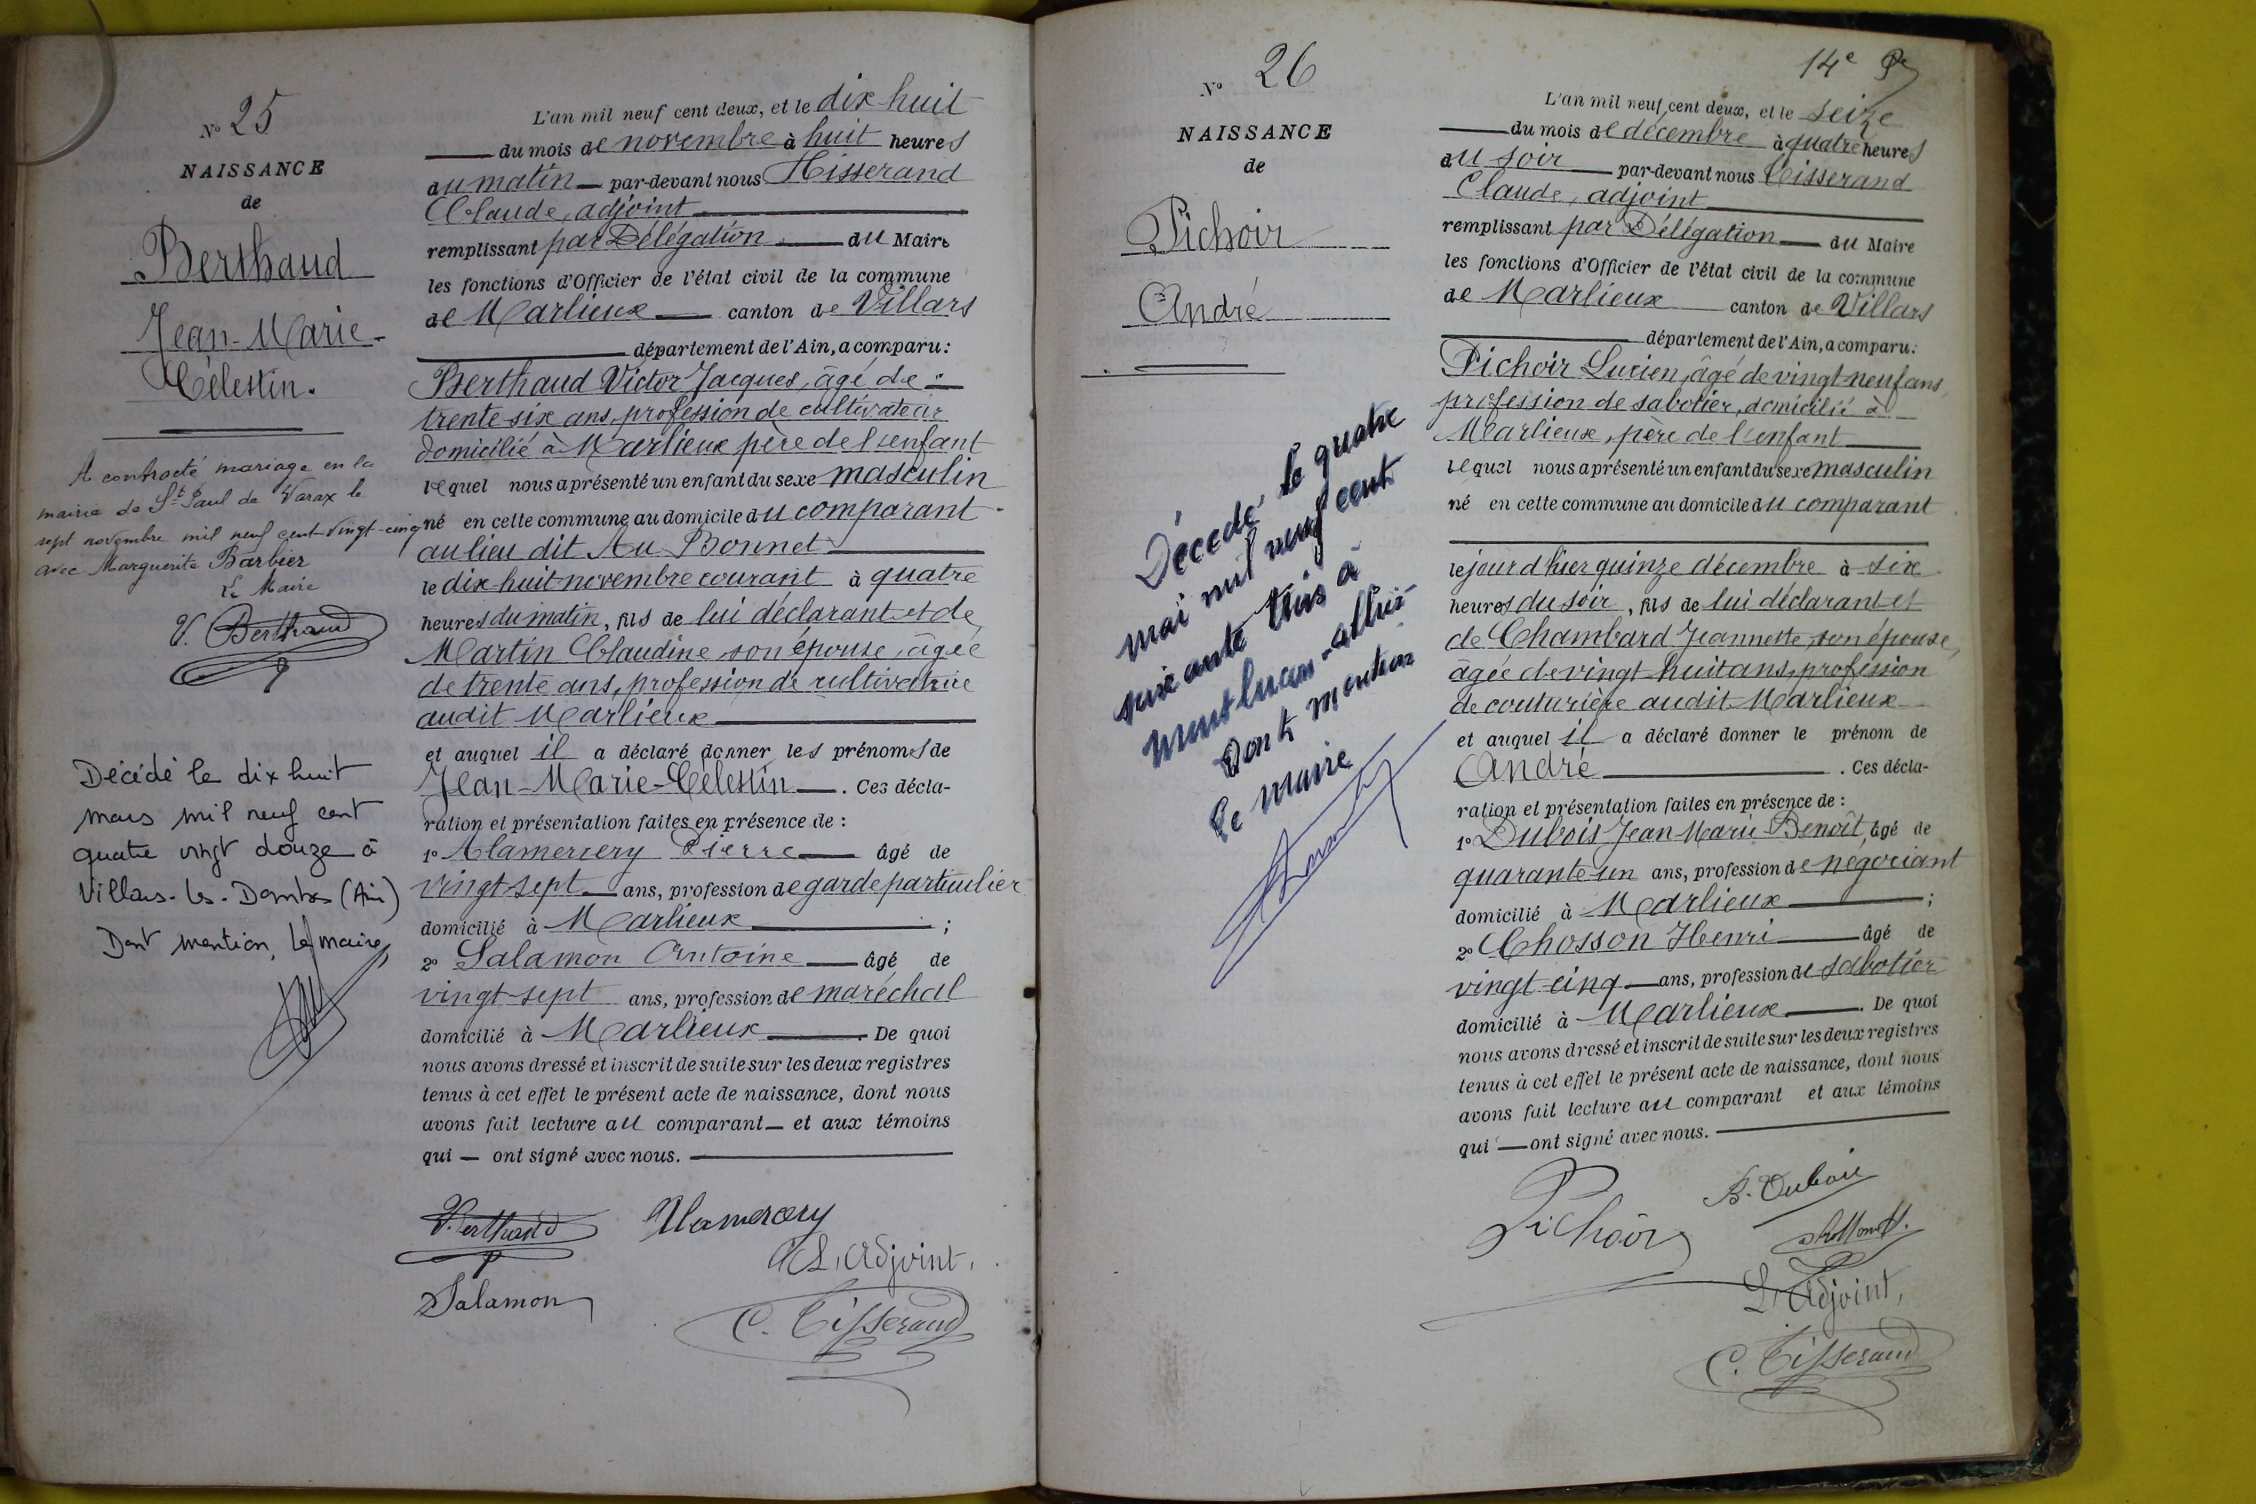 Nº 25
NAISSANCE
de
Berthaud
Jean-Marie-
Célestin.
A contracté mariage en la
mairie de St Paul de Varax le
sept novembre mil neuf cent vingt-cinq
avec Marguerite Barbier
Le Maire
V. Berthaud
Décédé le dix huit
mars mil neuf cent
quatre vingt douze à
Villars-les-Dombes (Ain)
Dont mention, Le maire,
L'an mil neuf cent deux, et le dix-huit
du mois de novembre à huit heures
du matin par-devant nous Tisserand
Claude, adjoint
remplissant par Délégation du Maire
les fonctions d'Officier de l'état civil de la commune
de Marlieux canton de Villars
département de l'Ain, a comparu:
Berthaud Victor Jacques, âgé de
trente six ans, profession de cultivateur
domicilié à Marlieux père de l'enfant
lequel nous a présenté un enfant du sexe masculin
né en cette commune au domicile du comparant
au lieu dit Au Bonnet
le dix huit novembre courant à quatre
heures du matin, fils de lui déclarant et de
Martin Claudine son épouse, âgée
de trente ans, profession de cultivatrice
audit Marlieux
et auquel il a déclaré donner les prénoms de
Jean-Marie-Célestin. Ces décla-
ration et présentation faites en présence de :
1º Alamercery Pierre âgé de
vingt-sept ans, profession de garde particulier
domicilié à Marlieux ;
2º Salamon Antoine âgé de
vingt-sept ans, profession de maréchal
domicilié à Marlieux. De quoi
nous avons dressé et inscrit de suite sur les deux registres
tenus à cet effet le présent acte de naissance, dont nous
avons fait lecture au comparant et aux témoins
qui ont signé avec nous.
V. Berthaud Alamercery
L'Adjoint,
Salamon
C. Tisserand
14e
Nº 26
NAISSANCE
de
Pichoir
André
Décédé le quatre
mai mil neuf cent
soixante trois à
Montluçon-Allier
Dont mention
Le Maire
L'an mil neuf cent deux, et le seize
du mois de décembre à quatre heures
du soir par-devant nous Tisserand
Claude, adjoint
remplissant par Délégation du Maire
les fonctions d'Officier de l'état civil de la commune
de Marlieux canton de Villars
département de l'Ain, a comparu:
Pichoir Lucien, âgé de vingt-neuf ans,
profession de sabotier, domicilié à
Marlieux, père de l'enfant
lequel nous a présenté un enfant du sexe masculin
né en cette commune au domicile du comparant
le jour d'hier quinze décembre à six
heures du soir, fils de lui déclarant et
de Chambard Jeannette, son épouse,
âgée de vingt-huit ans, profession
de couturière audit Marlieux
et auquel il a déclaré donner le prénom de
André. Ces décla-
ration et présentation faites en présence de :
1º Dubois Jean-Marie-Benoît, âgé de
quarante-un ans, profession de négociant
domicilié à Marlieux ;
2º Chosson Henri âgé de
vingt-cinq ans, profession de sabotier
domicilié à Marlieux. De quoi
nous avons dressé et inscrit de suite sur les deux registres
tenus à cet effet le présent acte de naissance, dont nous
avons fait lecture au comparant et aux témoins
qui ont signé avec nous.
Pichoir B. Dubois
L'Adjoint,
C. Tisserand